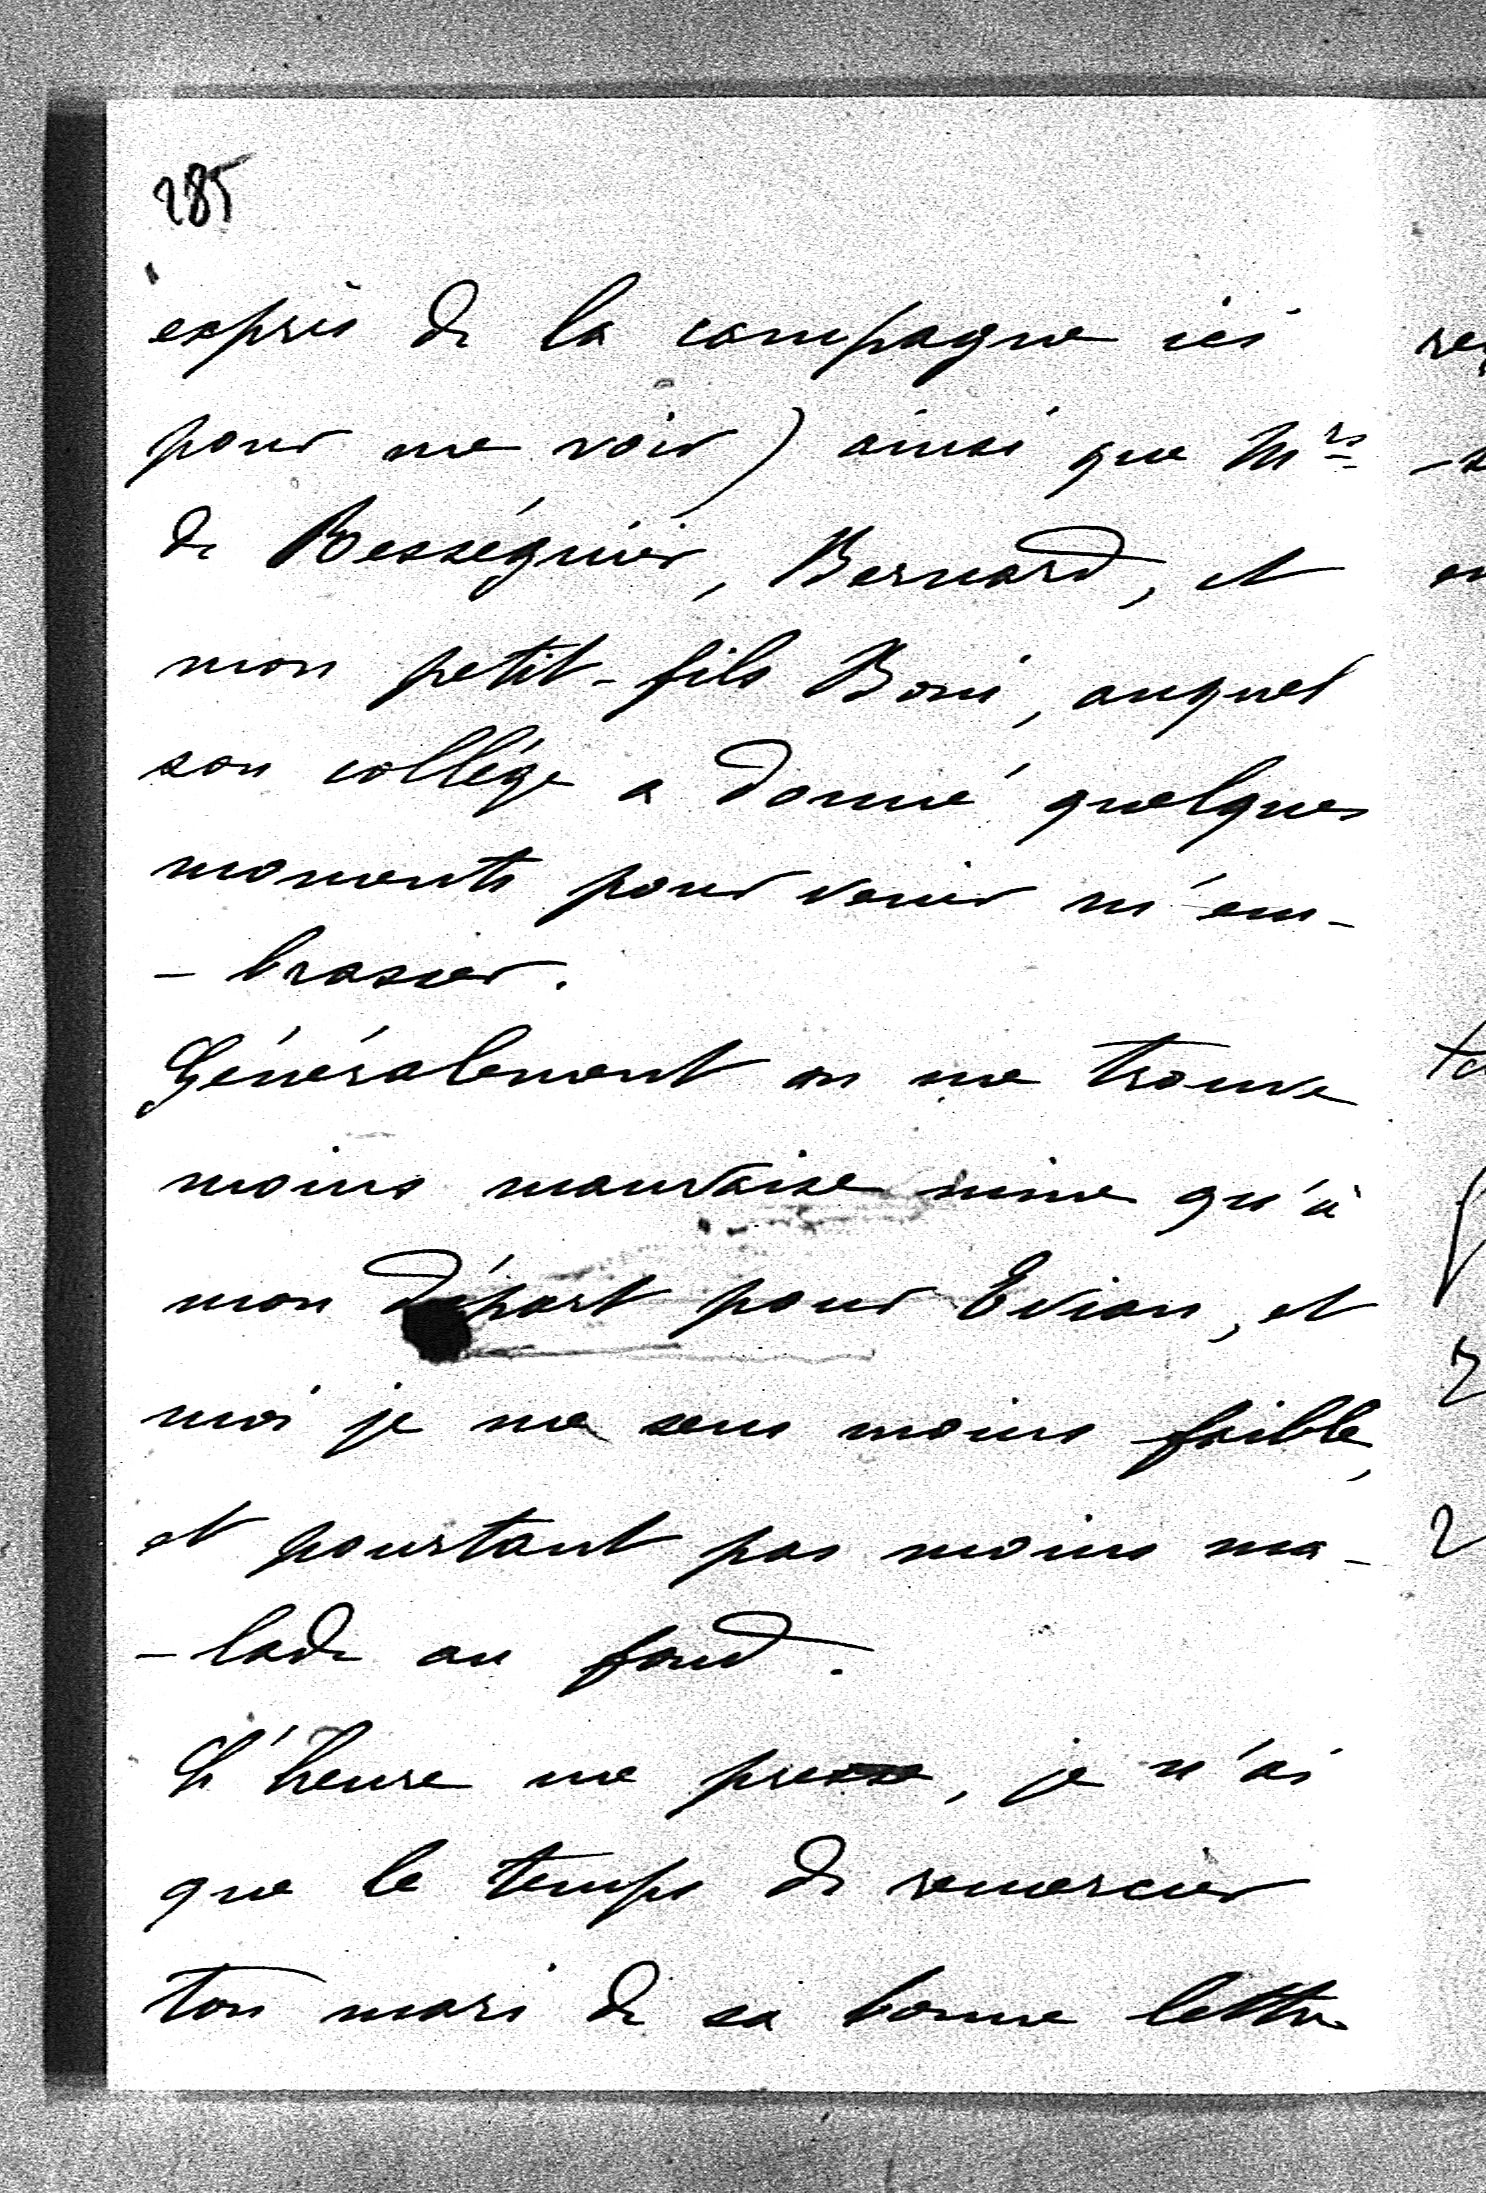 285
exprès de la campagne ici
pour me voir) ainsi que Mrs
de Rességuier, Bernard, et
mon petit-fils Boni, auquel
son collége a donné quelques
moments pour venir m'em-
-brasser.
Généralement on me trouve
moins mauvaise mine qu'à
mon départ pour Evian, et
moi je me sens moins faible,
et pourtant pas moins ma-
-lade au fond.
L'heure me presse, je n'ai
que le temps de remercier
ton mari de sa bonne lettre